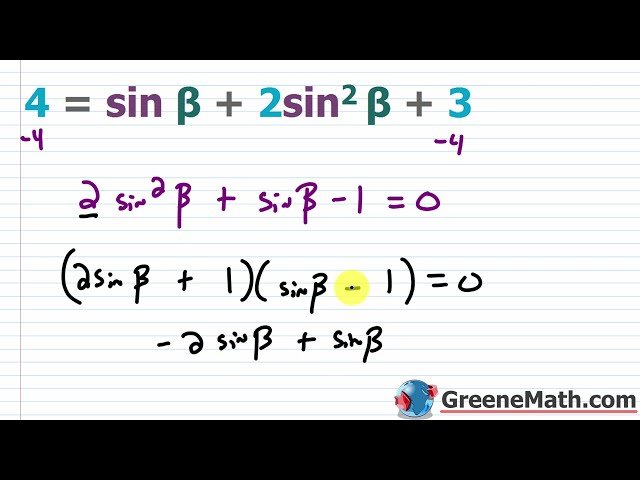 4 = sin β + 2sin² β + 3
-4 -4
2 sin²β + sinβ - 1 = 0
(2sinβ + 1)(sinβ - 1) = 0
- 2 sinβ + sinβ
GreeneMath.com